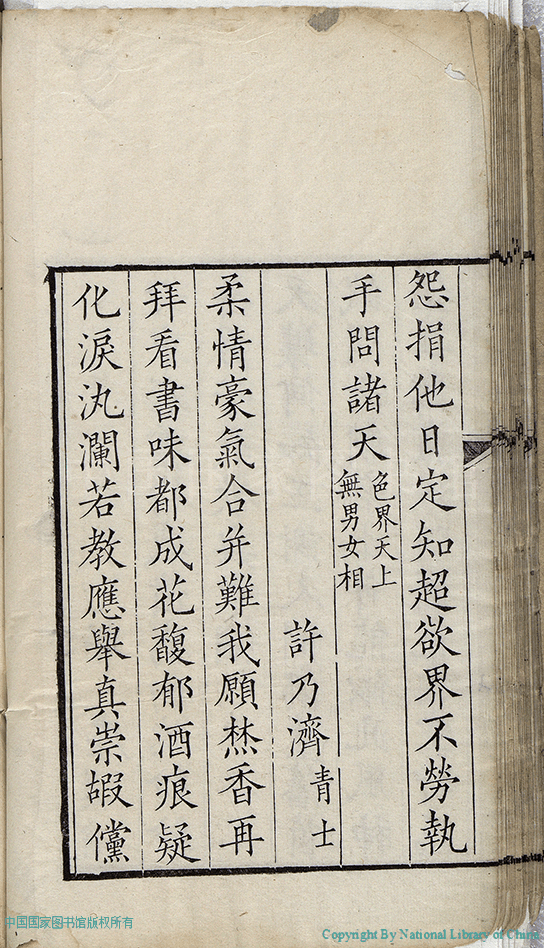 怨捐他日定知超欲界不勞執
手問諸天色界天上
無男女相
許乃濟青士
柔情豪氣合并難我願焚香再
拜看書味都成花馥郁酒痕疑
化淚汍瀾若教應舉真崇嘏儻
中国国家图书馆版权所有
Copyright By National Library of China